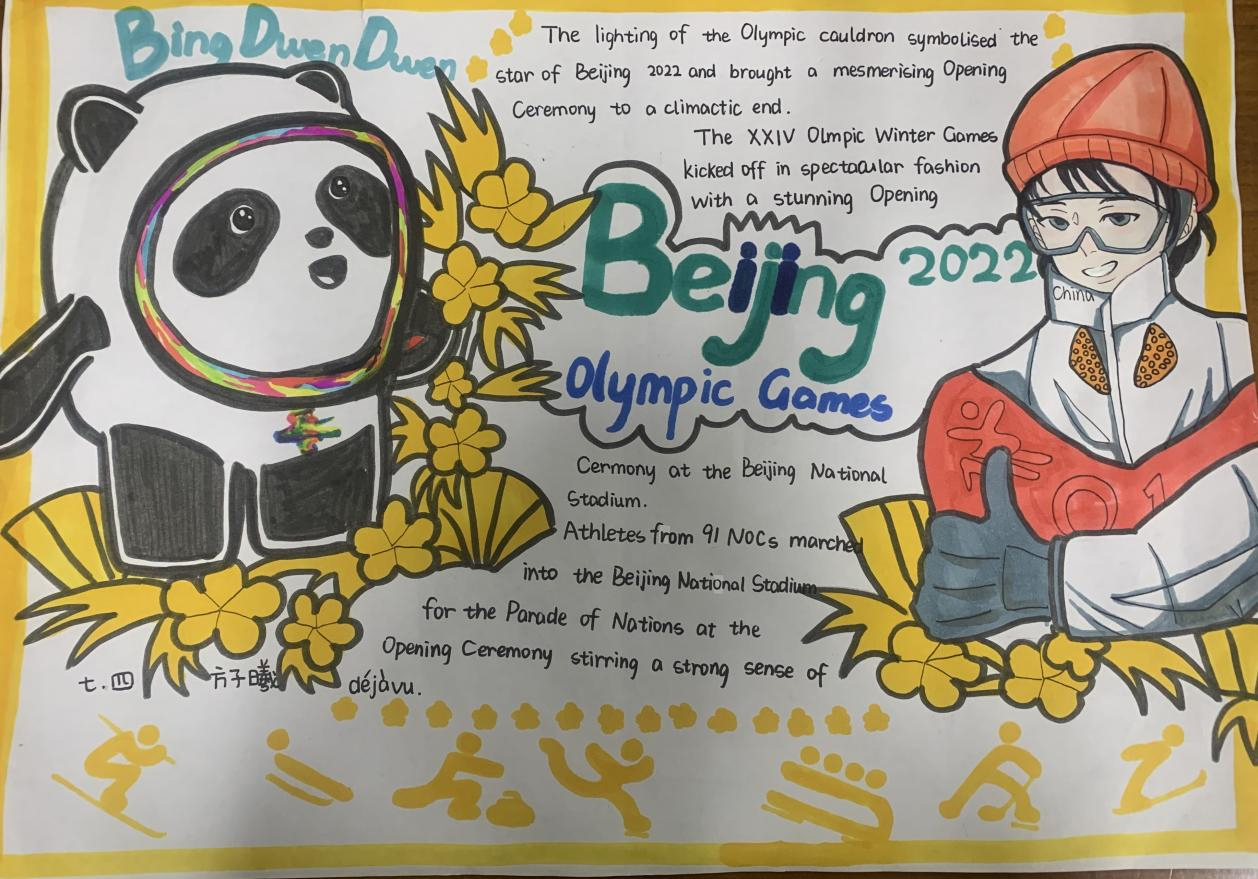 Bing Dwen Dwen
The lighting of the Olympic cauldron symbolised the
star of Beijing 2022 and brought a mesmerising Opening
Ceremony to a climactic end.
The XXIV Olmpic Winter Games
kicked off in spectacular fashion
with a stunning Opening
Beijing 2022
Olympic Games
China
Cermony at the Beijing National
Stadium.
Athletes from 91 NOCs marched
into the Beijing National Stadium
for the Parade of Nations at the
Opening Ceremony stirring a strong sense of
déjàvu.
七.四 方子曦